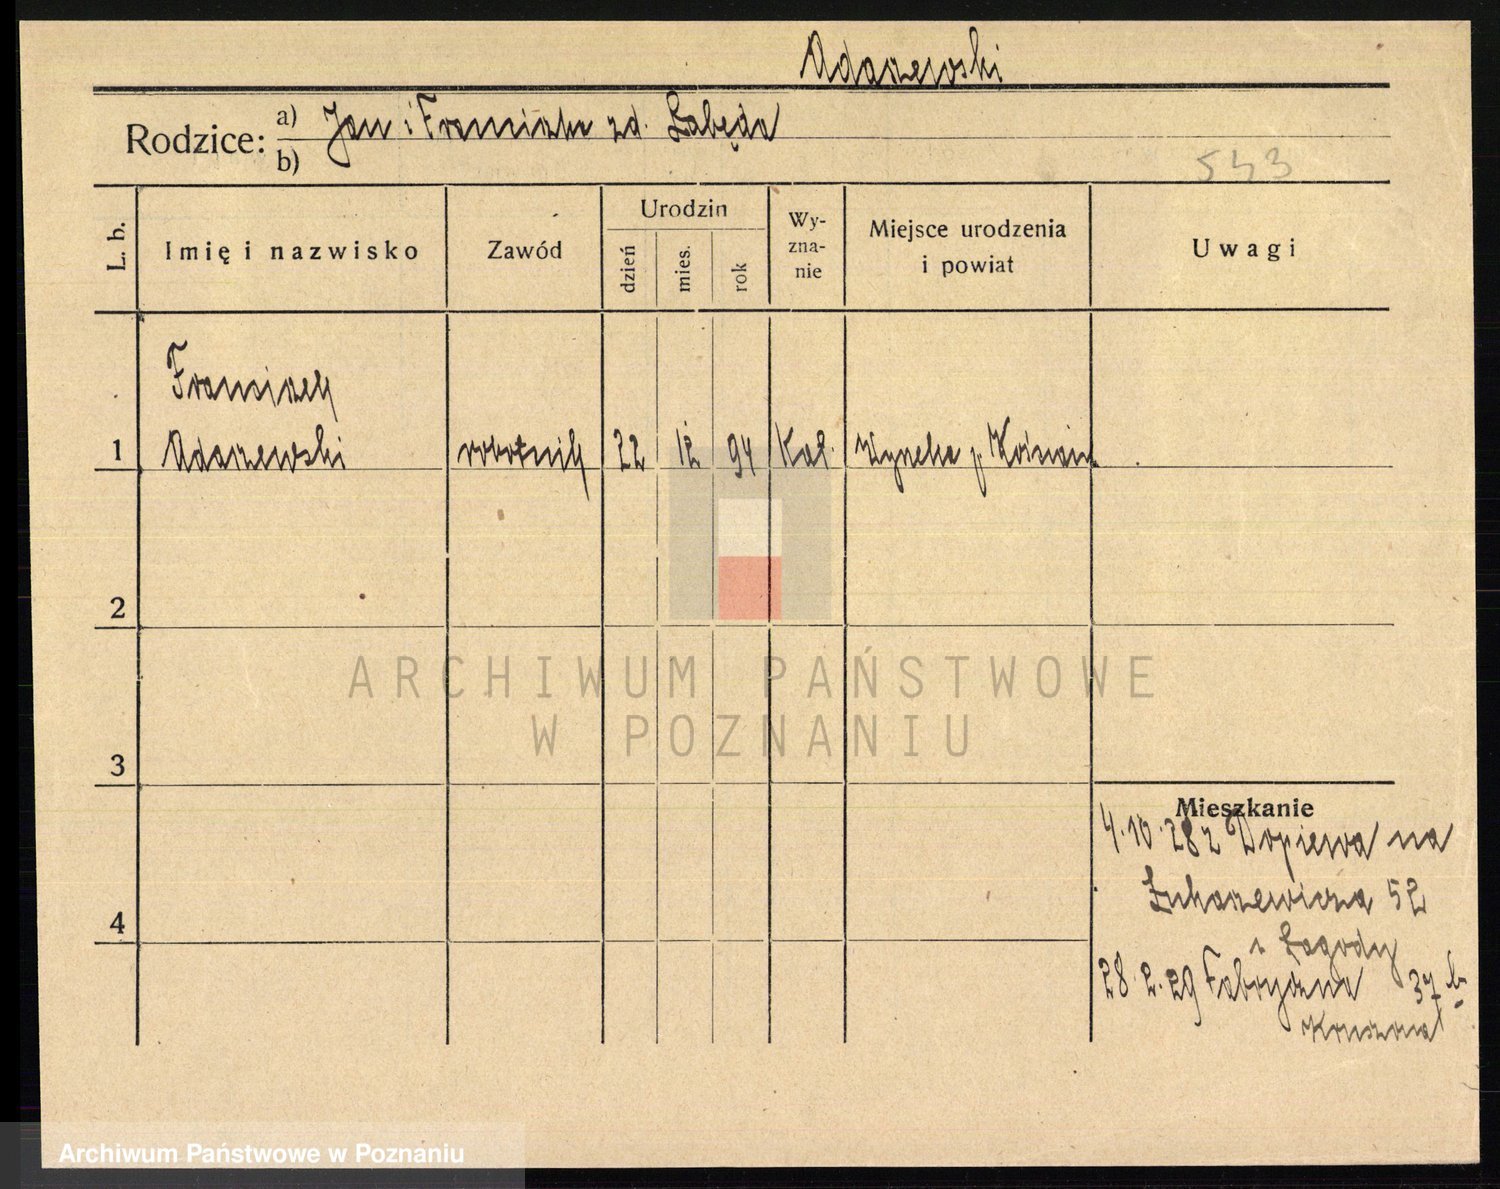 Adaszewski
Rodzice: a) Jan i Franciszka zd. Łabęda
b)
543
L. b.
Imię i nazwisko
Zawód
Urodzin
dzień
mies.
rok
Wy-
zna-
nie
Miejsce urodzenia
i powiat
Uwagi
Franciszek
1 Adaszewski robotnik 22 12 94 Kat. p. Kościan
2
3
4
ARCHIWUM PAŃSTWOWE
W POZNANIU
Mieszkanie
4.10.28 z Dopiewa na
Łukaszewicza 52
28.2.29 Fabryczna 37
Archiwum Państwowe w Poznaniu